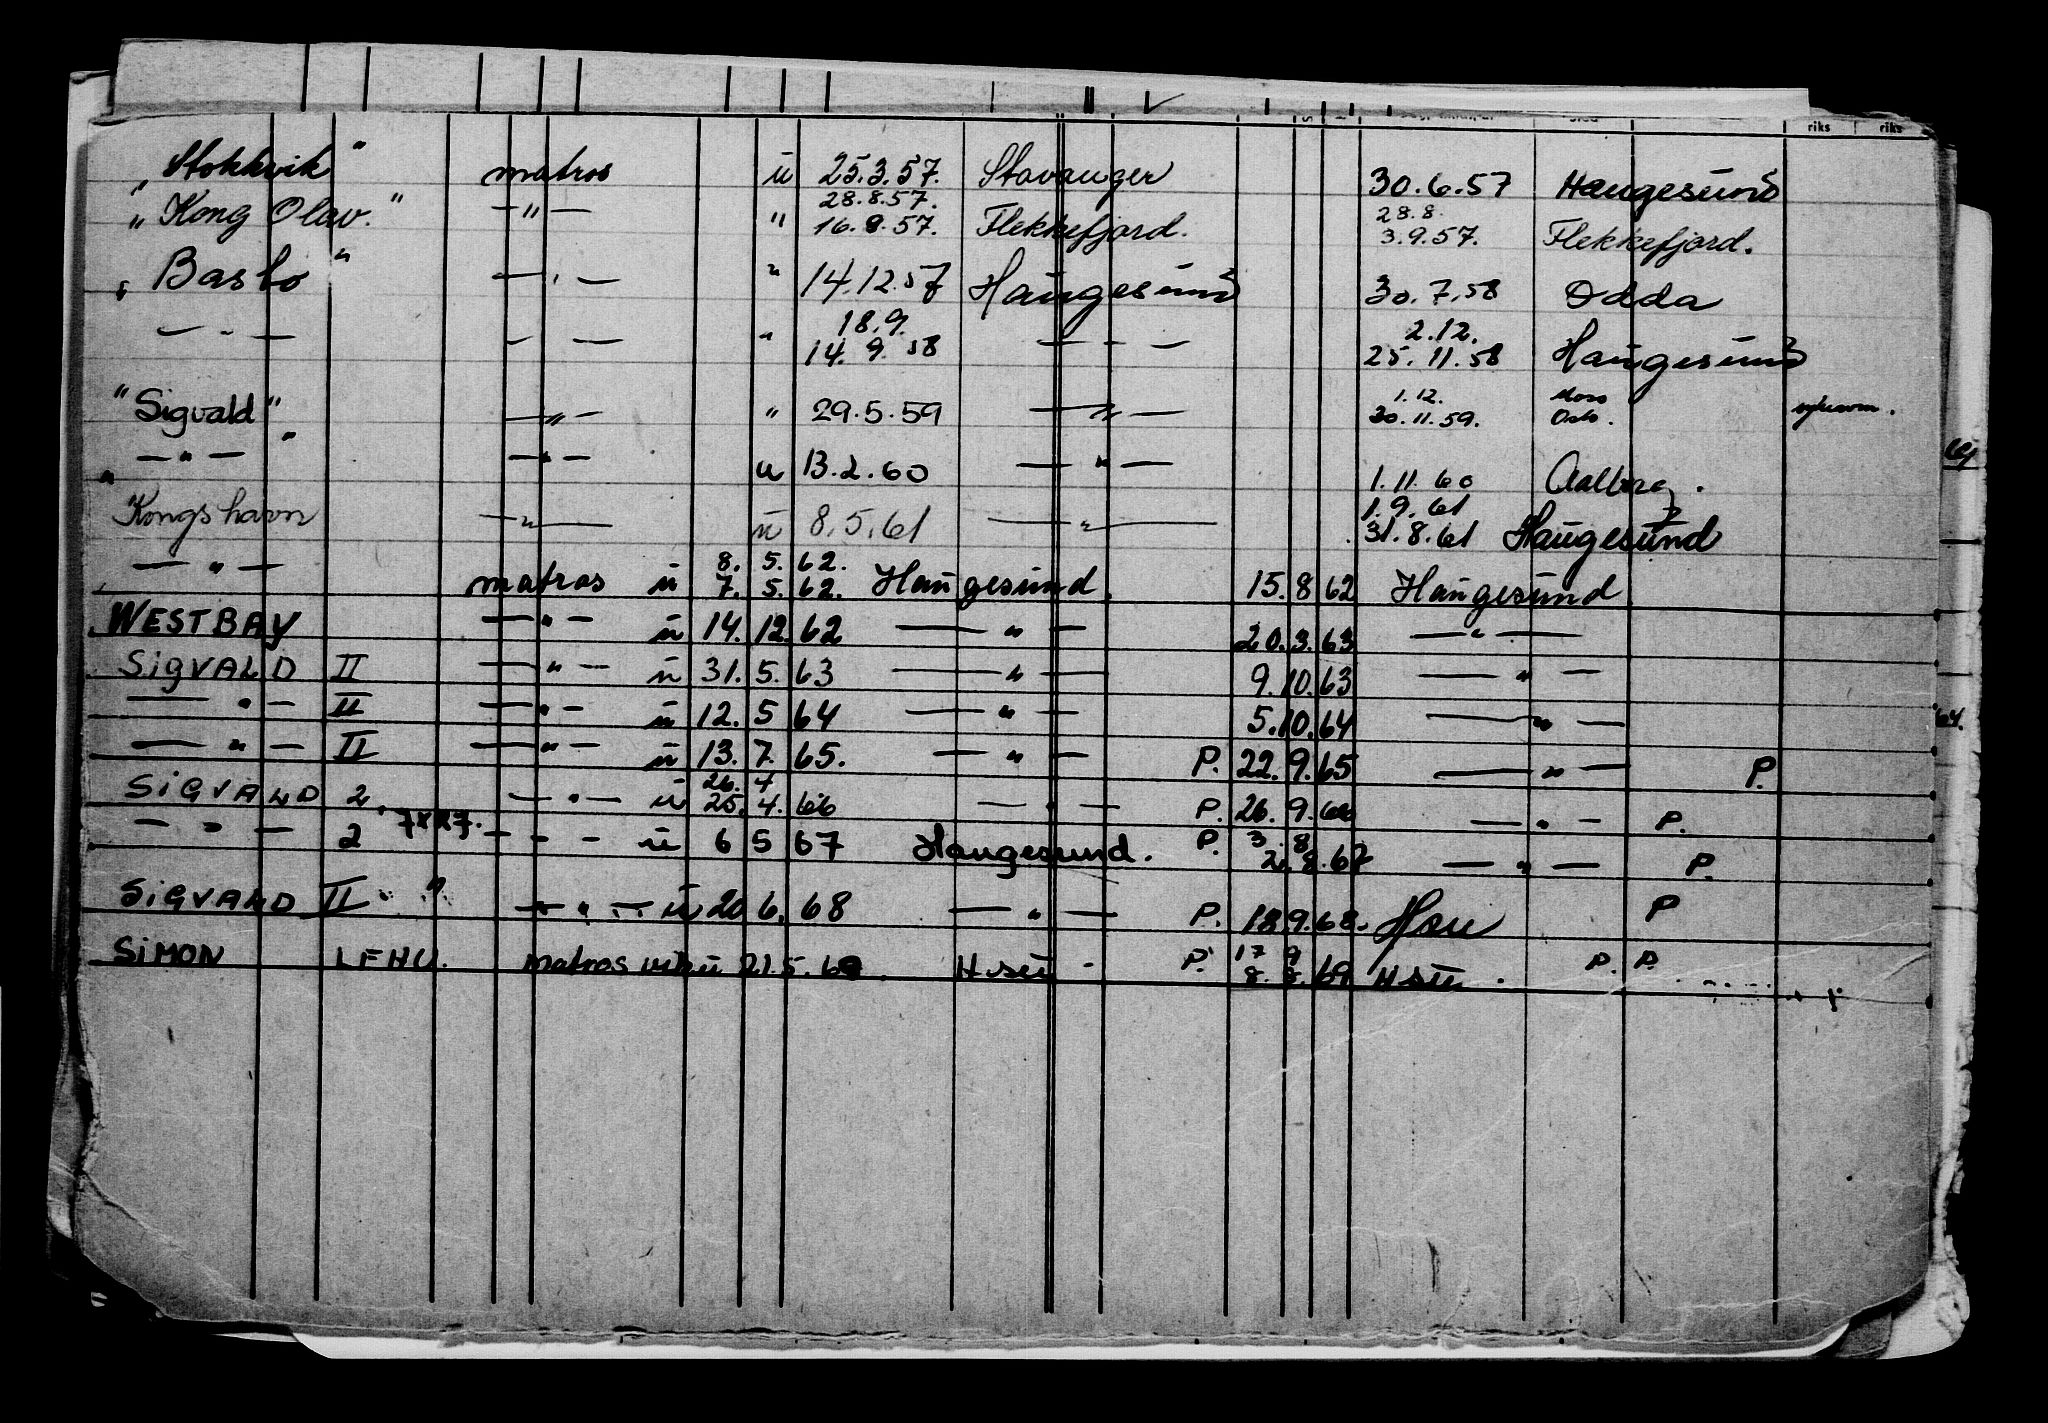 riks riks
"Stokkvik" matros u 25.3.57. Stavanger 30.6.57 Haugesund
28.8.57. 28.8.
"Kong Olav." —"— " 16.8.57. Flekkefjord. 3.9.57. Flekkefjord.
"Basto" —"— " 14.12.57 Haugesund 30.7.58 Odda
18.9. 2.12.
—"— —"— " 14.9.58 —"— 25.11.58 Haugesund
1.12. Moss
"Sigvald" —"— " 29.5.59 —"— 30.11.59. Oslo.
—"— —"— u 13.2.60 —"— 1.11.60 Aalborg.
1.9.61
Kongshavn —"— u 8.5.61 —"— 31.8.61 Haugesund
8. 5. 62.
—"— matros u 7. 5. 62. Haugesund 15. 8 62 Haugesund
WESTBAY —"— u 14. 12. 62 —"— 20. 3. 63 —"—
SIGVALD II —"— u 31. 5. 63 —"— 9. 10. 63 —"—
—"— II —"— u 12. 5 64 —"— 5. 10. 64 —"—
—"— II —"— u 13. 7. 65. —"— P. 22. 9. 65 —"— P.
26. 4
SIGVALD 2. —"— u 25. 4. 66 —"— P. 26. 9. 66 —"— P.
3. 8
—"— 2 —"— u 6 5 67 Haugesund. P. 2. 8. 67 —"— P.
SIGVALD II —"— u 20 6. 68 —"— P. 18. 9. 68. Hsu P
17 9
SIMON LEHU. matros u 21. 5. Hsu P. 8. 8. 69 Hsu. P. P.
64.